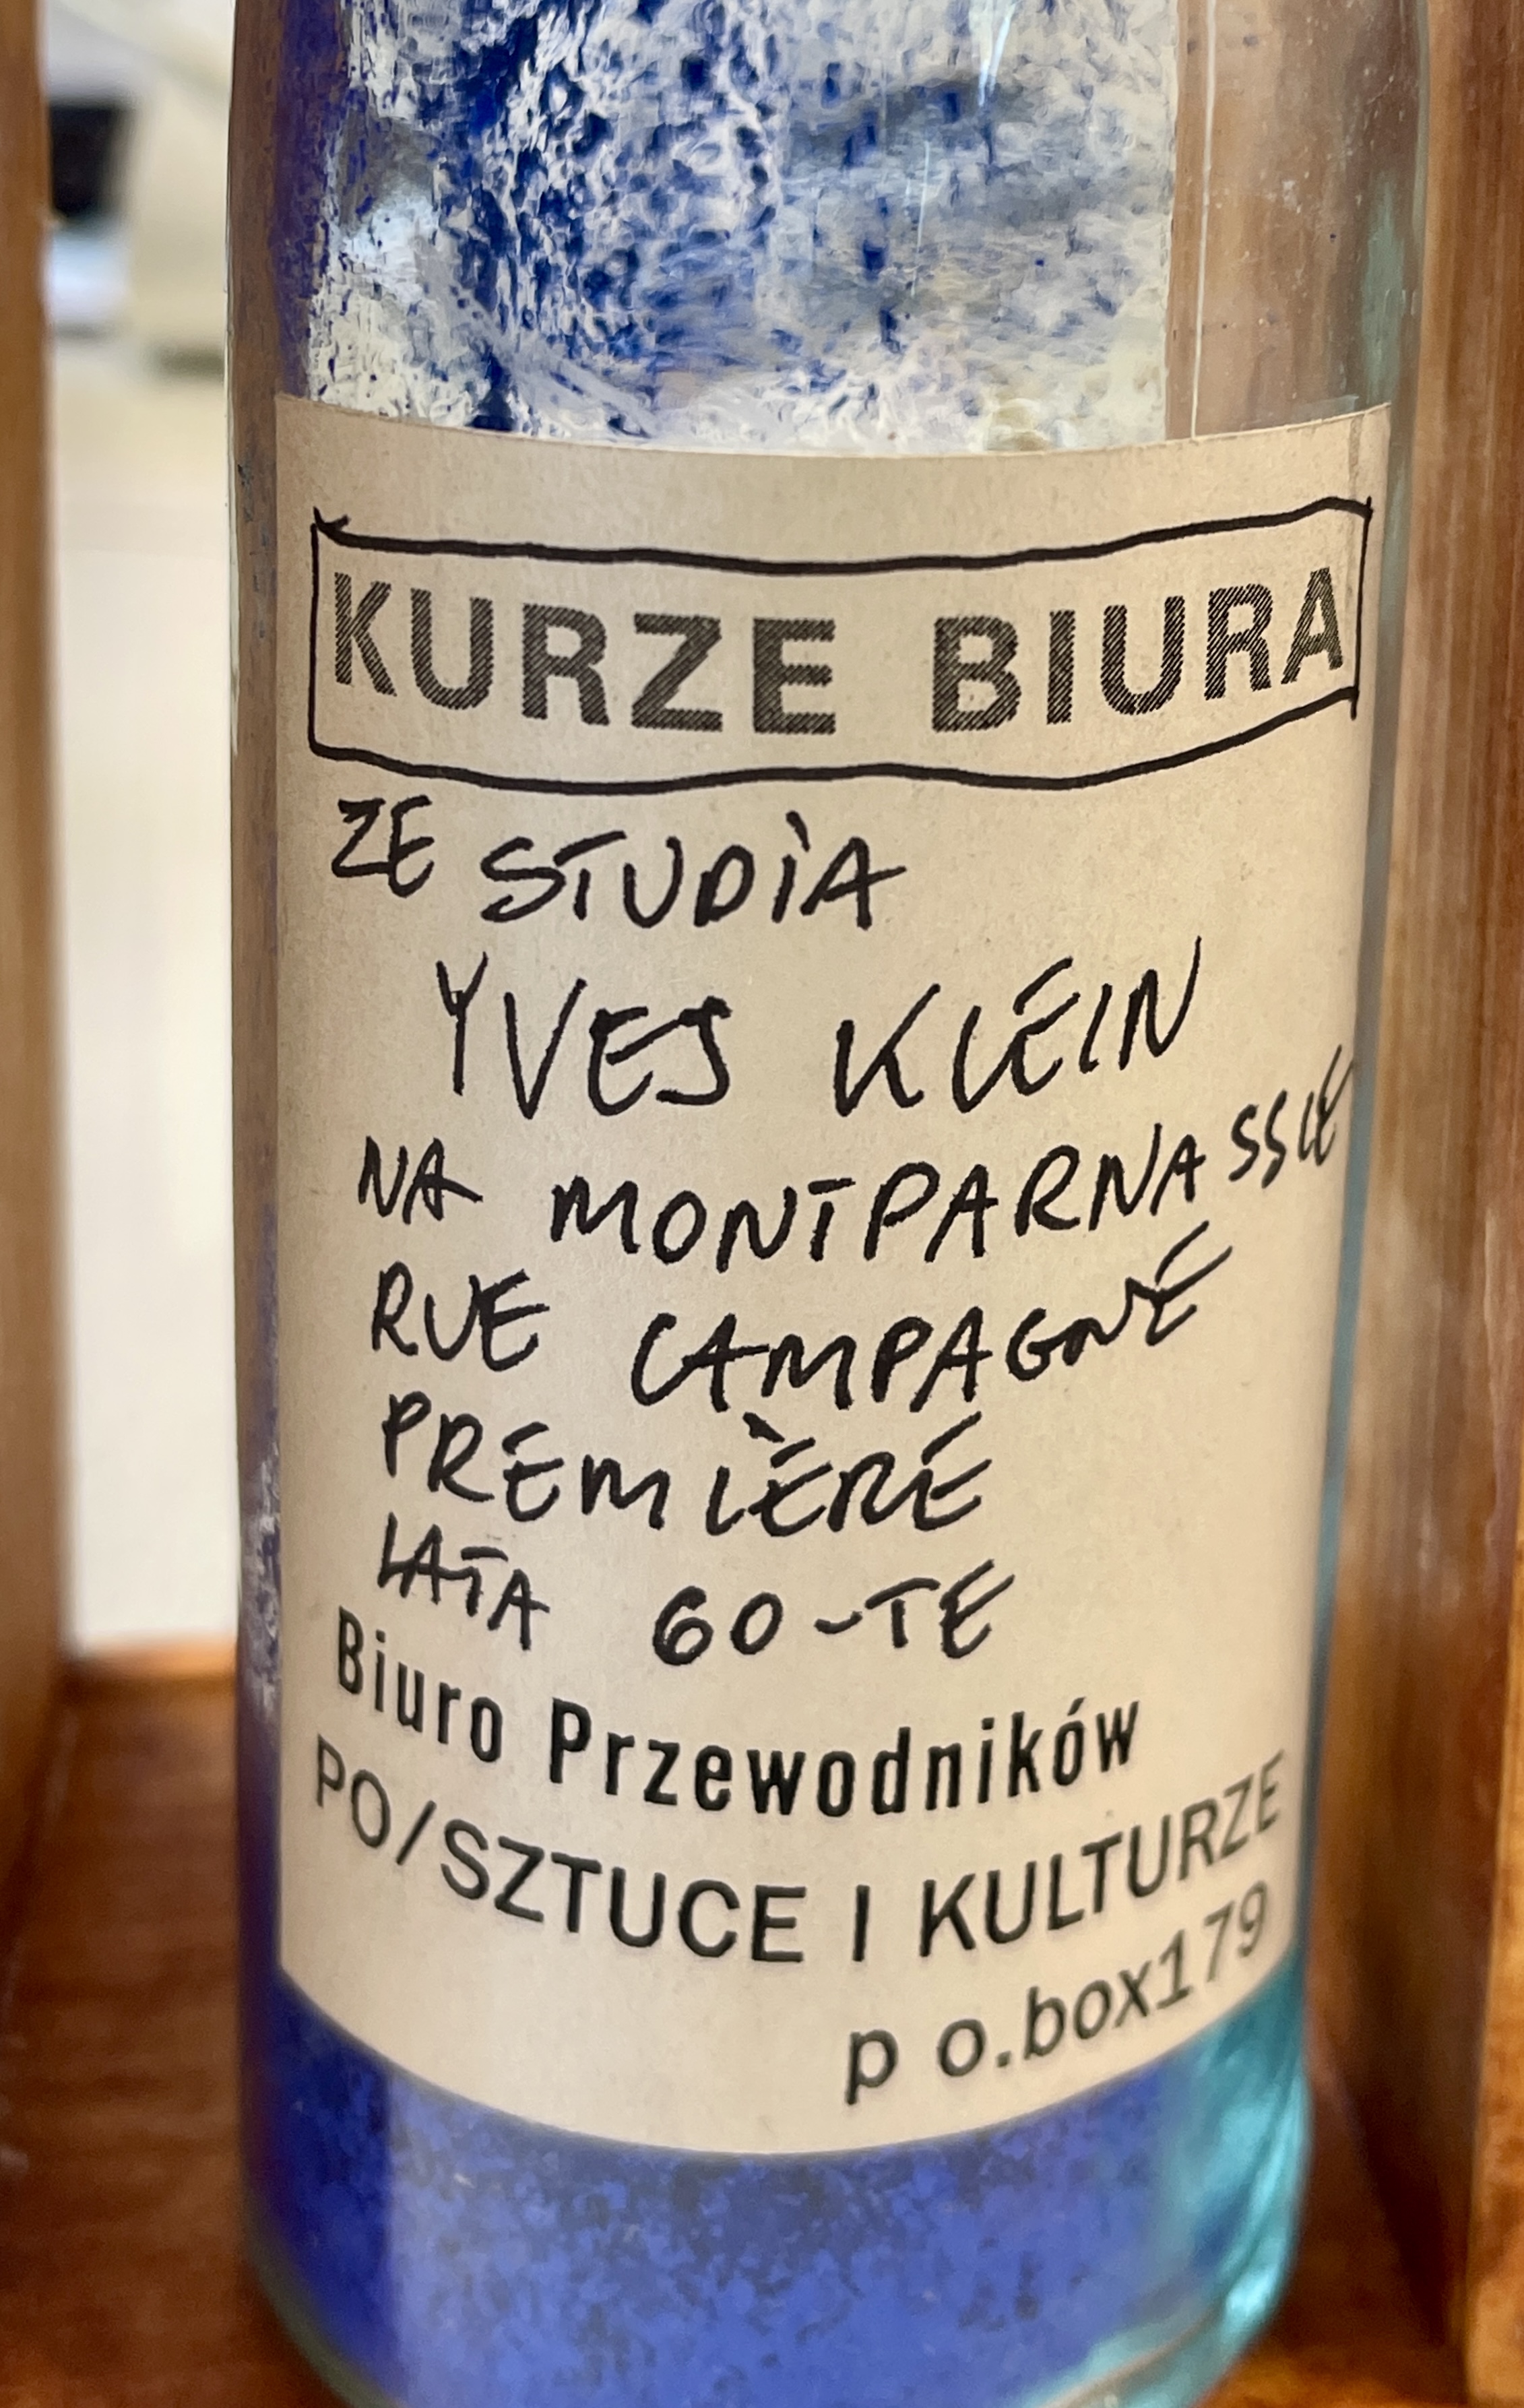 KURZE BIURA
ZE STUDIA
YVES KLEIN
NA MONTPARNASSIE
RUE CAMPAGNE
PREMIÈRE
LATA 60-TE
Biuro Przewodników
PO/SZTUCE I KULTURZE
p o.box179